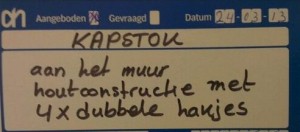 ah Aangeboden Gevraagd Datum 24-03-13
KAPSTOK
aan het muur
houtconstructie met
4x dubbele hakjes